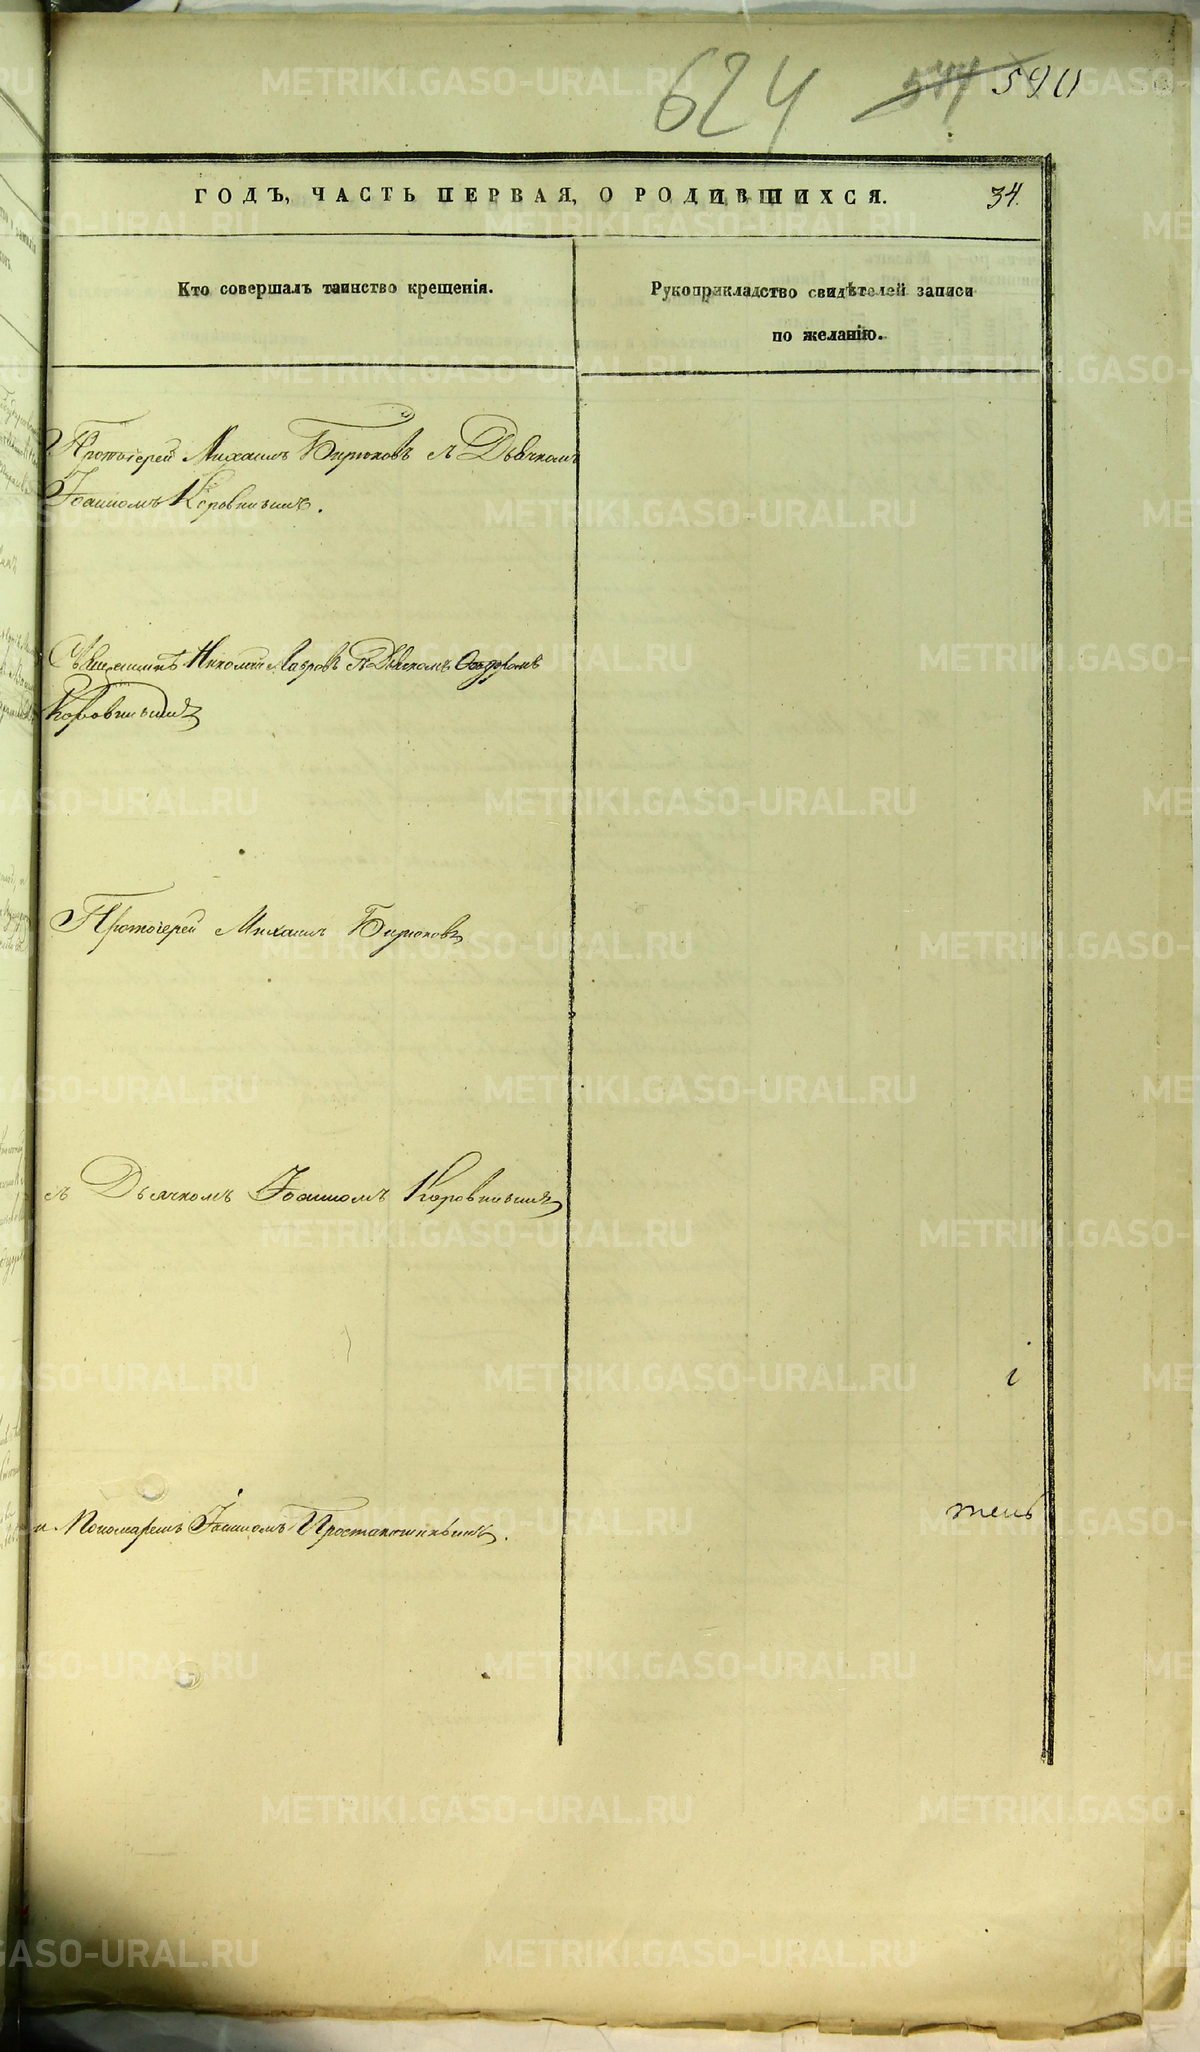 624 544 590
ГОДЪ, ЧАСТЬ ПЕРВАЯ, О РОДИВШИХСЯ. 34.
Кто совершалъ таинство крещенія.
Рукоприкладство свидѣтелей записи
по желанію.
Протоіерей Михаилъ Бирюковъ съ Дьячкомъ
Іоанномъ Коровинымъ.
Священникъ Николай Лавровъ съ Дьячкомъ
Коровинымъ
Протоіерей Михаилъ Бирюковъ
съ Дьячкомъ Іоанномъ Коровинымъ
и Пономаремъ Іоанномъ
METRIKI.GASO-URAL.RU